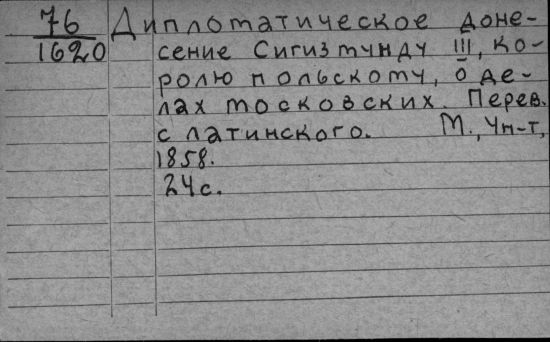 76
1620
Дипломатическое доне-
сение Сигизмунду III, ко-
ролю польскому, о де-
лах московских. Перев.
с латинского. М., Ун-т,
1858.
24 с.